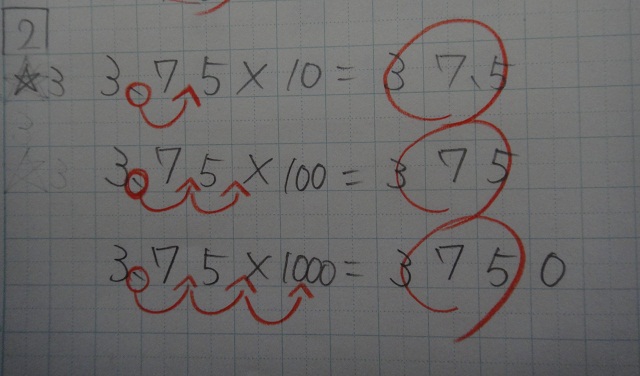 2
☆3 3.75×10=37.5
3.75×100=375
3.75×1000=3750